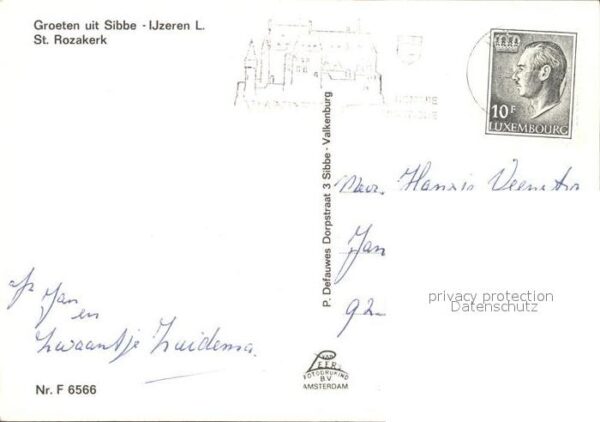 Groeten uit Sibbe - IJzeren L.
St. Rozakerk
10F
LUXEMBOURG
P. Defauwes Dorpstraat 3 Sibbe - Valkenburg
Hannis Veenstra
Jan
92
privacy protection
Datenschutz
Jan
en
Zwaantje Zuidema.
VAN LEER
FOTODRUKIND
B.V
AMSTERDAM
Nr. F 6566